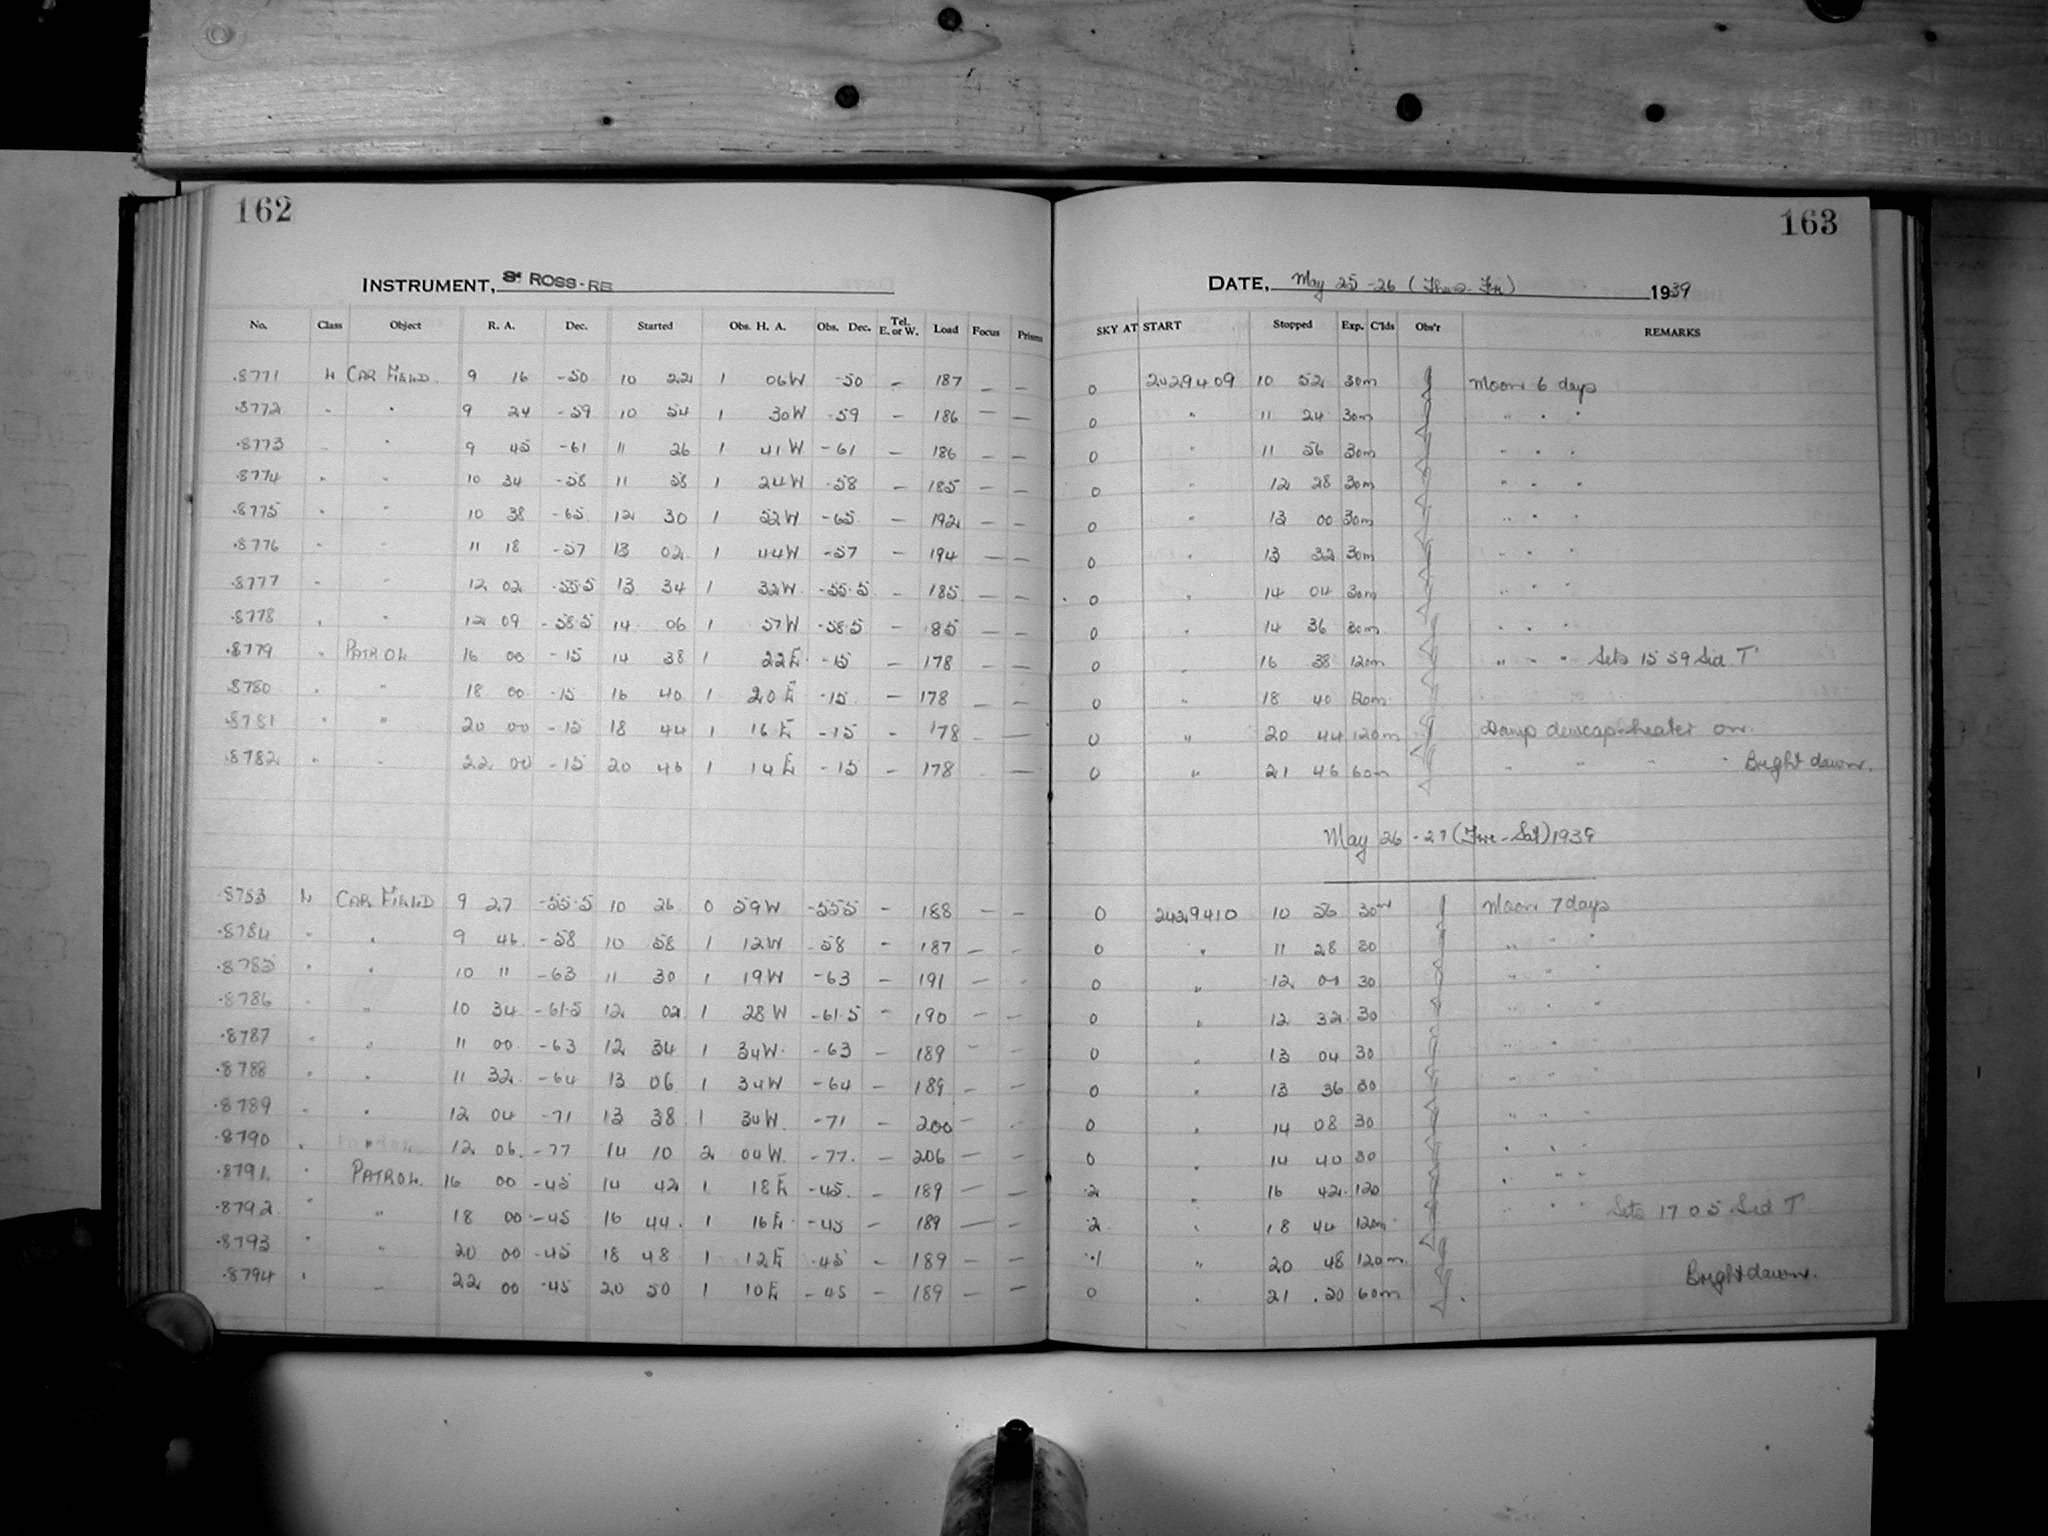 162
INSTRUMENT, ROSS-
No. Class Object R. A. Dec. Started Obs. H. A. Obs. Dec. Tel. E. or W. Load Focus Prisms
.8771 L CAR FIELD 9 16 -50 10 22 1 06W -50 — 187 — —
.8772 " " 9 24 -59 10 54 1 30W -59 — 186 — —
.8773 " " 9 45 -61 11 26 1 41W -61 — 186 — —
.8774 " " 10 34 -58 11 58 1 24W -58 — 185 — —
.8775 " " 10 38 -65 12 30 1 52W -65 — 192 — —
.8776 " " 11 18 -57 13 02 1 44W -57 — 194 — —
.8777 " " 12 02 -55.5 13 34 1 32W -55.5 — 185 — —
.8778 " " 12 09 -58.5 14 06 1 57W -58.5 — 185 — —
.8779 " PATROL 16 00 -15 14 38 1 22E -15 — 178 — —
.8780 " " 18 00 -15 16 40 1 20E -15 — 178 — —
.8781 " " 20 00 -15 18 44 1 16E -15 — 178 — —
.8782 " " 22 00 -15 20 46 1 14E -15 — 178 — —
.8783 L CAR FIELD 9 27 -55.5 10 26 0 59W -55.5 — 188 — —
.8784 " " 9 46 -58 10 58 1 12W -58 — 187 — —
.8785 " " 10 11 -63 11 30 1 19W -63 — 191 — —
.8786 " " 10 34 -61.5 12 02 1 28W -61.5 — 190 — —
.8787 " " 11 00 -63 12 34 1 34W -63 — 189 — —
.8788 " " 11 32 -64 13 06 1 34W -64 — 189 — —
.8789 " " 12 04 -71 13 38 1 34W -71 — 200 — —
.8790 " " 12 06 -77 14 10 2 04W -77 — 206 — —
.8791 " PATROL 16 00 -45 14 42 1 18E -45 — 189 — —
.8792 " " 18 00 -45 16 44 1 16E -45 — 189 — —
.8793 " " 20 00 -45 18 48 1 12E -45 — 189 — —
.8794 " " 22 00 -45 20 50 1 10E -45 — 189 — —
163
DATE, May 25-26 (Thu - Fri) 1939
SKY AT START Stopped Exp. C'lds Obs'r REMARKS
0 2429409 10 52 30m Moon 6 days
0 " 11 24 30m " " "
0 " 11 56 30m " " "
0 " 12 28 30m " " "
0 " 13 00 30m " " "
0 " 13 32 30m " " "
0 " 14 04 30m " " "
0 " 14 36 30m " " "
0 " 16 38 120m " " " Sets 15 59 Sid. T
0 " 18 40 120m
0 " 20 44 120m Damp dewcap-heater on.
0 " 21 46 60m " " " " Bright dawn.
May 26-27 (Fri - Sat) 1939
0 2429410 10 56 30m Moon 7 days
0 " 11 28 30 " " "
0 " 12 00 30 " " "
0 " 12 32 30 " " "
0 " 13 04 30 " " "
0 " 13 36 30 " " "
0 " 14 08 30 " " "
0 " 14 40 30 " " "
.2 " 16 42 120 " " "
.2 " 18 44 120m " " " Sets 17 05 Sid T
.1 " 20 48 120m
0 " 21 .20 60m Bright dawn.